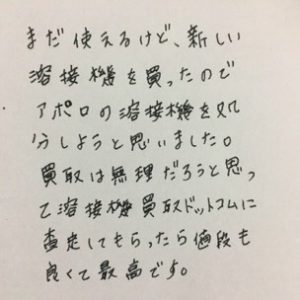 まだ使えるけど、新しい
溶接機を買ったので
アポロの溶接機を処
分しようと思いました。
買取は無理だろうと思っ
て溶接機買取ドットコムに
査定してもらったら値段も
良くて最高です。